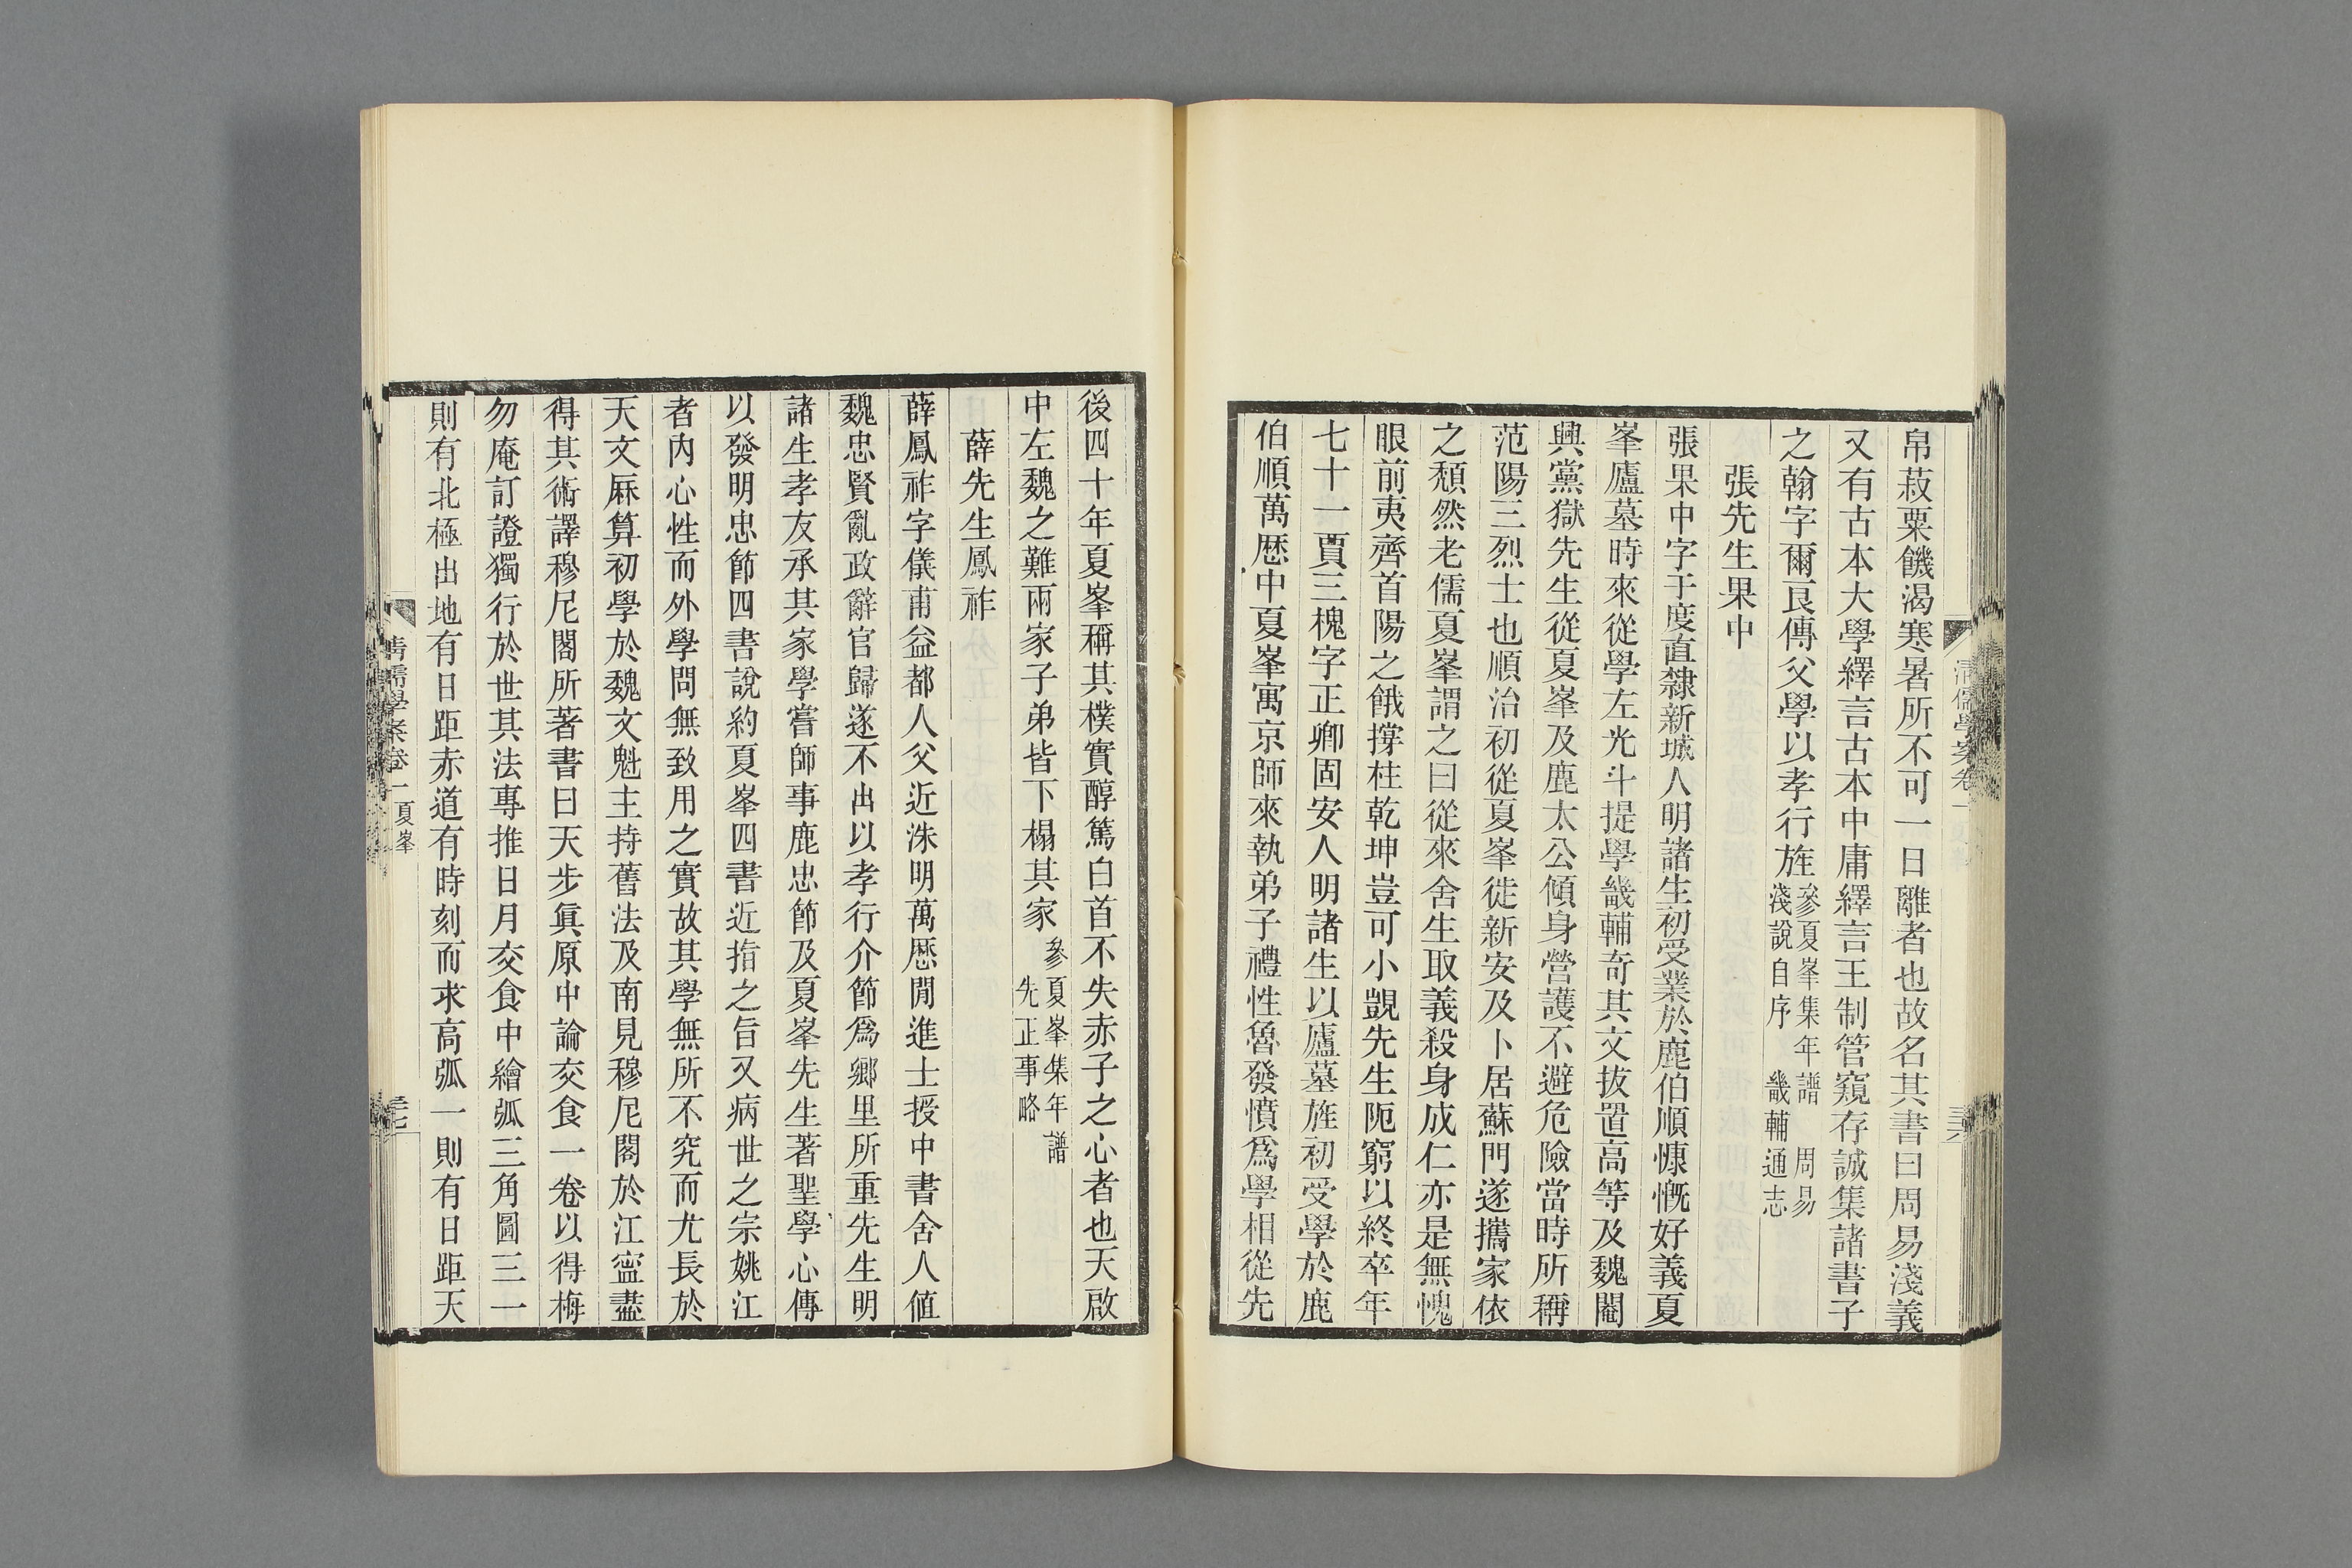 帛菽粟饑渴寒暑所不可一日離者也故名其書曰周易淺義
又有古本大學繹言古本中庸繹言王制管窺存誠集諸書子
之翰字爾艮傳父學以孝行旌參夏峯集年譜 周易淺說自序 畿輔通志
張先生果中
張果中字于度直隸新城人明諸生初受業於鹿伯順慷慨好義夏
峯廬墓時來從學左光斗提學畿輔奇其文拔置高等及魏閹
興黨獄先生從夏峯及鹿太公傾身營護不避危險當時所稱
范陽三烈士也順治初從夏峯徙新安及卜居蘇門遂攜家依
之頹然老儒夏峯謂之曰從來舍生取義殺身成仁亦是無愧
眼前夷齊首陽之餓撐柱乾坤豈可小覬先生阨窮以終卒年
七十一賈三槐字正卿固安人明諸生以廬墓旌初受學於鹿
伯順萬厯中夏峯寓京師來執弟子禮性魯發憤爲學相從先
清儒學案卷一
三六
後四十年夏峯稱其樸實醇篤白首不失赤子之心者也天啟
中左魏之難兩家子弟皆下榻其家參夏峯集年譜 先正事略
薛先生鳳祚
薛鳳祚字儀甫益都人父近洙明萬厯閒進士授中書舍人値
魏忠賢亂政辭官歸遂不出以孝行介節爲鄉里所重先生明
諸生孝友承其家學嘗師事鹿忠節及夏峯先生著聖學心傳
以發明忠節四書說約夏峯四書近指之旨又病世之宗姚江
者內心性而外學問無致用之實故其學無所不究而尤長於
天文厤算初學於魏文魁主持舊法及南見穆尼閣於江寍盡
得其術譯穆尼閣所著書曰天步眞原中論交食一卷以得梅
勿庵訂證獨行於世其法專推日月交食中繪弧三角圖三一
則有北極出地有日距赤道有時刻而求高弧一則有日距天
清儒學案卷一 夏峯
三七